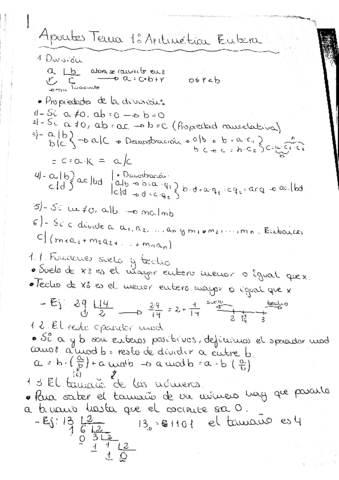 Apuntes Tema 1: Aritmética Entera
1 División
a | b ahora se convierte en: → a = c·b + r 0 ≤ r < b
r c
• Propiedades de la división:
1)- Si a ≠ 0, ab = 0 → b = 0
2)- Si a ≠ 0, ab = ac → b = c (Propiedad cancelativa)
3)- a|b } → a|c → Demostración: a|b → b = a·c₁
b|c b|c → c = b·c₂
= c = a·k = a/c
4)- a|b } ac|bd • Demostración:
c|d a|b → b = a·q₁ } b·d = a·q₁·c·q₂ = ac·q → ac|bd
c|d → d = c·q₂
5)- Si m ≠ 0, a|b → ma|mb
6)- Si c divide a a₁, a₂, ... aₙ y m₁, m₂, ..., mₙ. Entonces
c|(m₁a₁ + m₂a₂ + ... + mₙaₙ)
1.1. Funciones suelo y techo
• Suelo de x: es el mayor entero menor o igual que x.
• Techo de x: es el menor entero mayor o igual que x
- Ej: 29 | 14 → 29/14 = 2 + 1/14 suelo techo
1 2 2 3
1.2. El resto operador mod
• Si a y b son enteros positivos, definimos el operador mod
como: a mod b = resto de dividir a entre b.
a = b·(a/b) + a mod b → a mod b = a - b(a/b)
1.3 El tamaño de los números.
• Para saber el tamaño de un número hay que pasarlo
a binario hasta que el cociente sea 0.
- Ej: 13 | 2 13₁₀ = 1101 el tamaño es 4
1 6 | 2
0 3 | 2
1 1 | 2
1 0